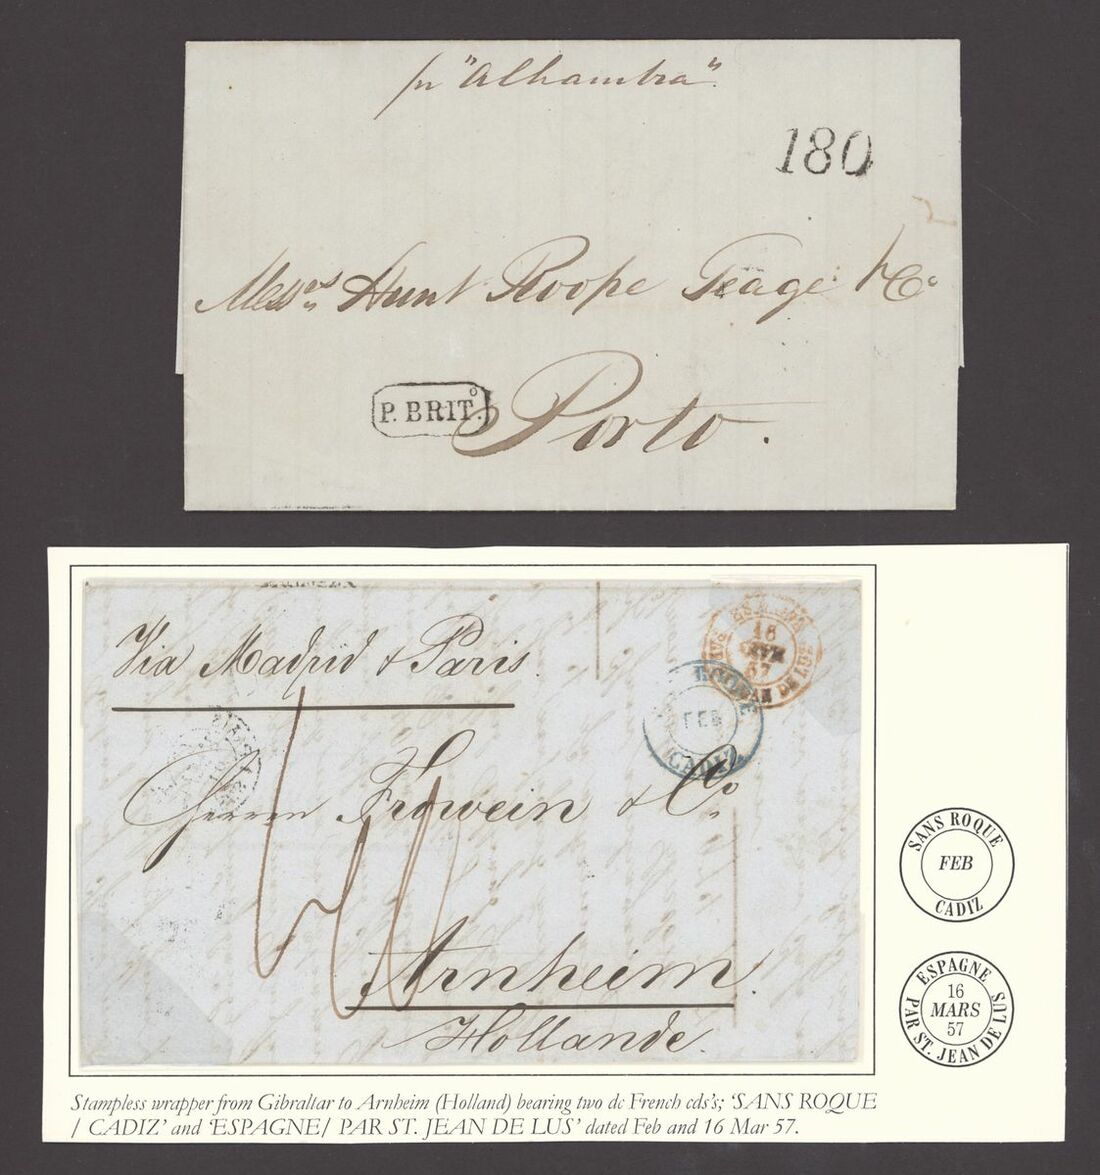 pr "Alhambra".
180
Messrs Hunt Roope Teage & Co
P. BRITº.
Porto.
Via Madrid & Paris.
16
MARS
57
JEAN DE LUS
FEB
CADIZ
Herren Frowein & Co.
Arnheim
Hollande.
SANS ROQUE
FEB
CADIZ
ESPAGNE
16
MARS
57
PAR ST. JEAN DE LUS
Stampless wrapper from Gibraltar to Arnheim (Holland) bearing two dc French cds's; 'SANS ROQUE
/ CADIZ' and 'ESPAGNE/ PAR ST. JEAN DE LUS' dated Feb and 16 Mar 57.